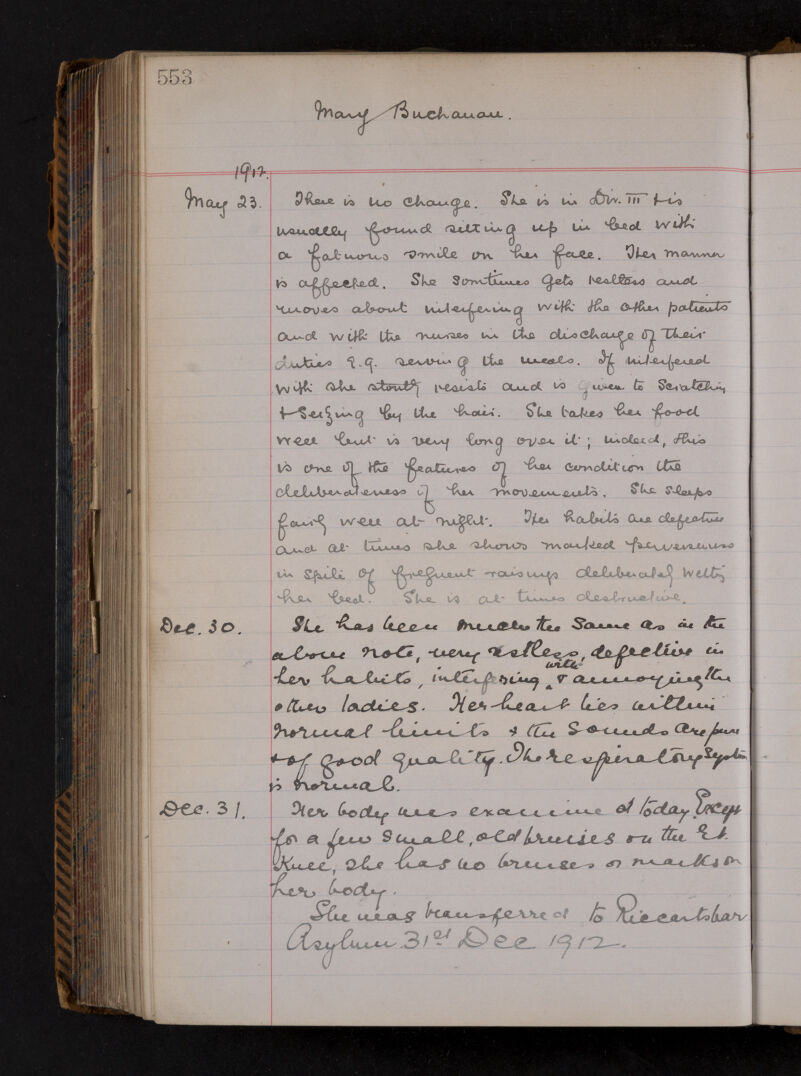 553
Mary Buchanan.
1912.
May 23. There is no change. She is in Div. III & is
usually found sitting up in bed with
a fatuous smile on her face. Her manner
is affected. She somtimes gets restless and
moves about interfering with the other patients
and with the nurses in the discharge of their
duties e.g. serving the meals. If interfered
with she stoutly resists and is given to scratching
& seizing by the hair. She takes her food
well but is very long over it; indeed, this
is one of the features of her condition the
deliberateness of her movements. She sleeps
fairly well at night. Her habits are defective
and at times she shows marked perverseness
in spite of frequent raisings deliberately wetting
her bed. She is at times destructive.
Dec. 30. She has been much the same as in the
above note, very restless, defective in
her habits, interfering with & annoying the
other ladies. Her heart lies within
normal limits & the sounds are pure
& of good quality. The respiratory system
is normal.
Dec. 31. Her body was examined today. Except
for a few small, old bruises on the Rt.
Knee, she has no bruises or marks on
her body.
She was transferred to Riccartsbar
Asylum 31st Dec 1912.